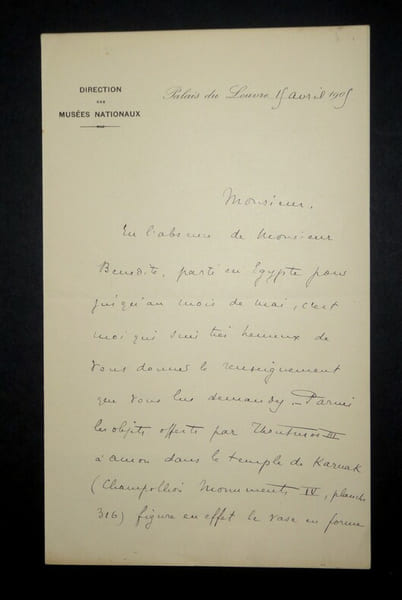 DIRECTION
DES
MUSÉES NATIONAUX
Palais du Louvre, 15 avril 1905
Monsieur,
En l'absence de Monsieur
Bénédite, parti en Egypte pour
jusqu'au mois de mai, c'est
moi qui suis très heureux de
vous donner le renseignement
que vous lui demandez. Parmi
les objets offerts par Thoutmès III
à Amon dans le temple de Karnak
(Champollion Monuments IV, planche
316) figure en effet le vase en forme